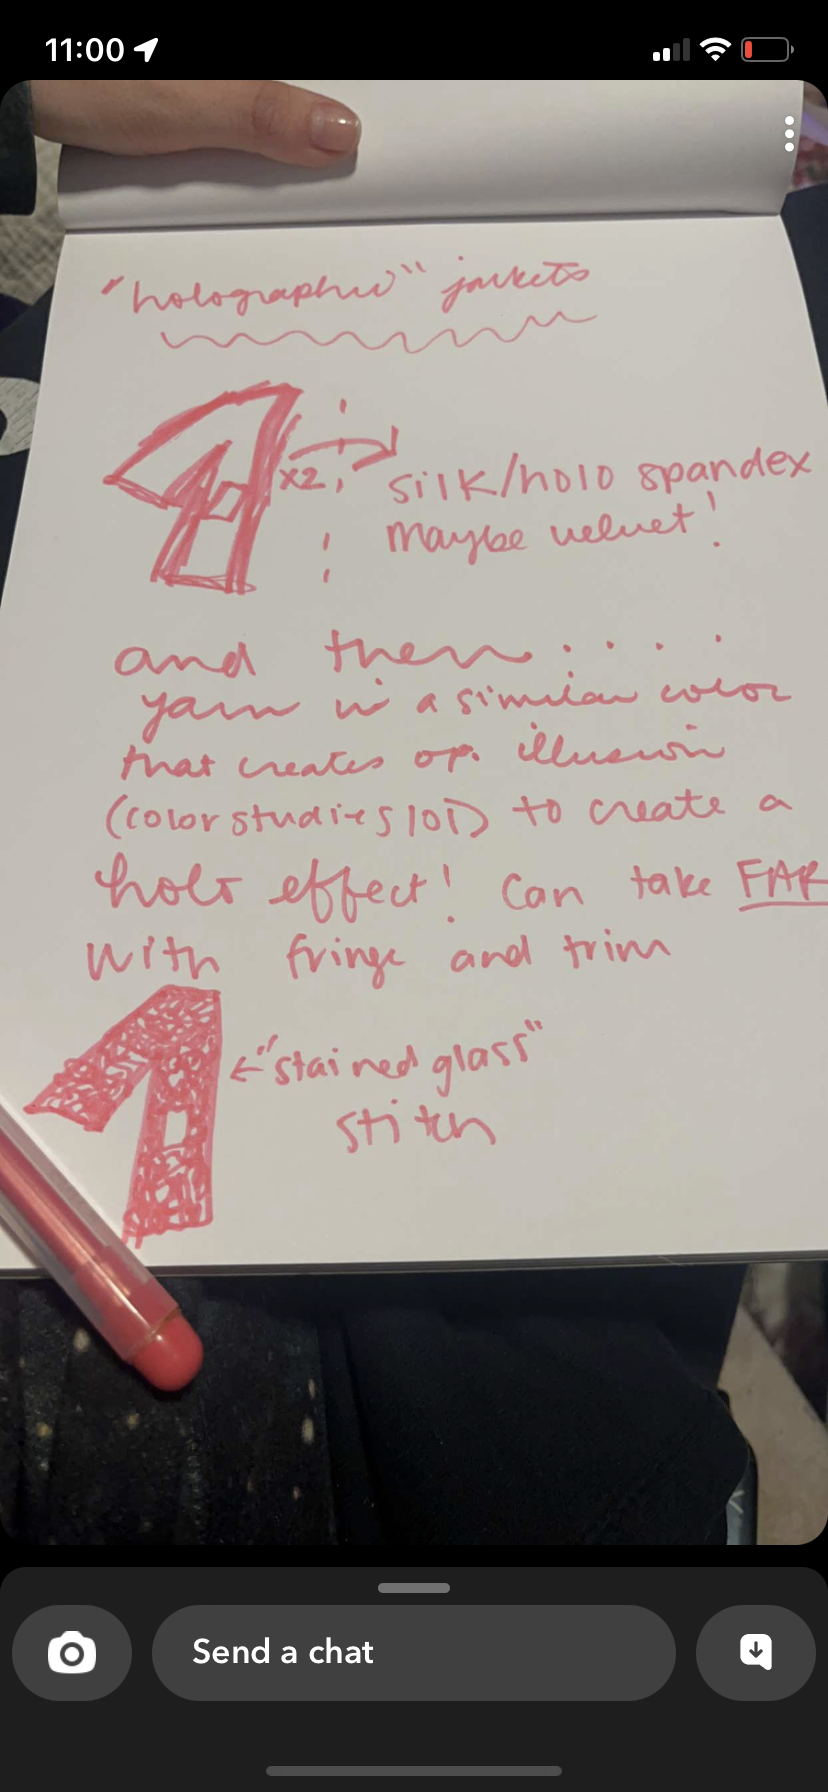 11:00
"holographic" jackets
x2,
silk/holo spandex
maybe velvet!
and then.....
yarn in a similar color
that creates op. illusion
(color studies 101) to create a
holo effect! Can take FAR
with fringe and trim
←"stained glass"
stitch
Send a chat